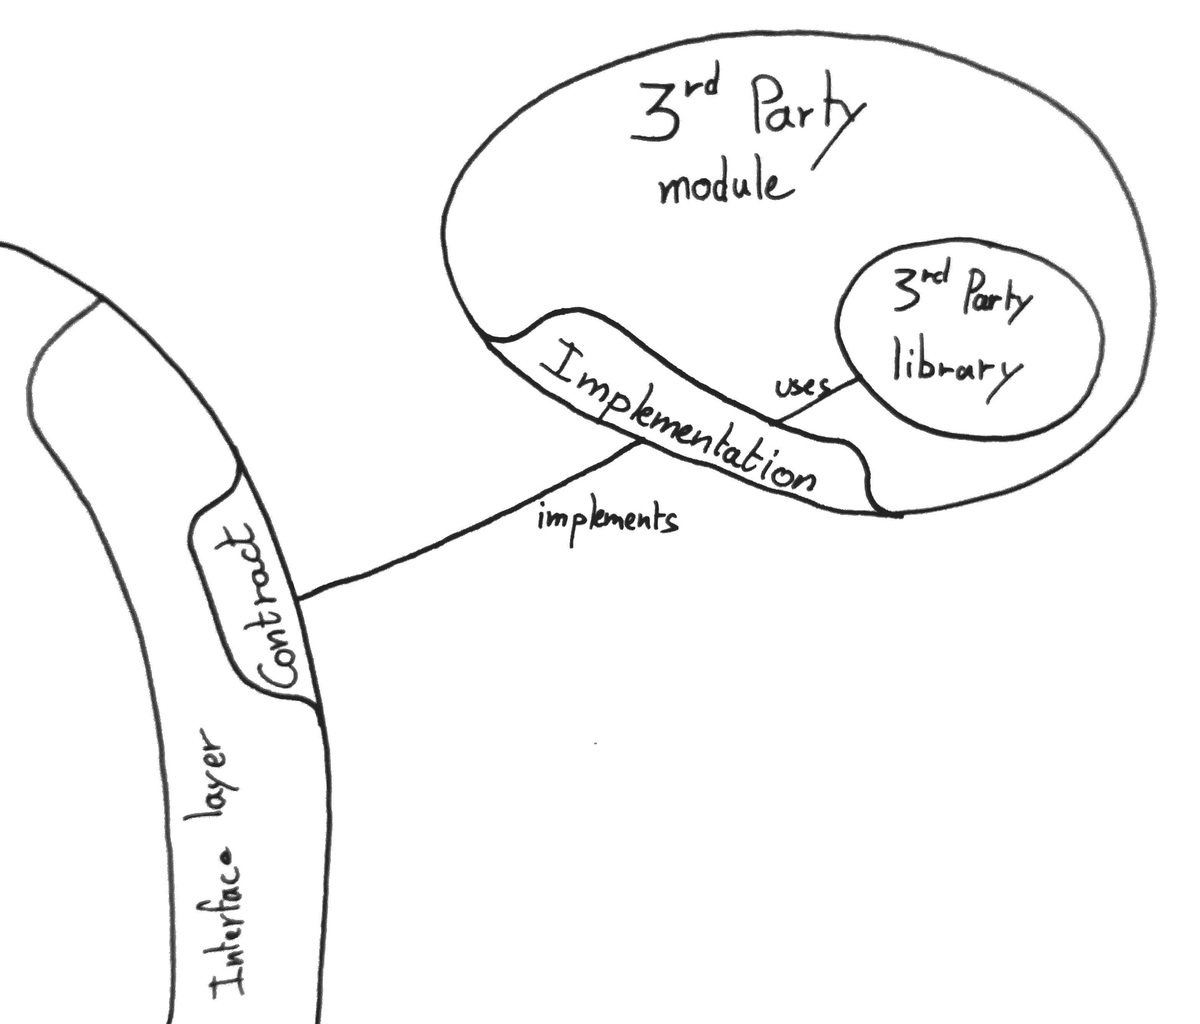 3rd Party
module
3rd Party
library
uses
Implementation
implements
Contract
Interface layer